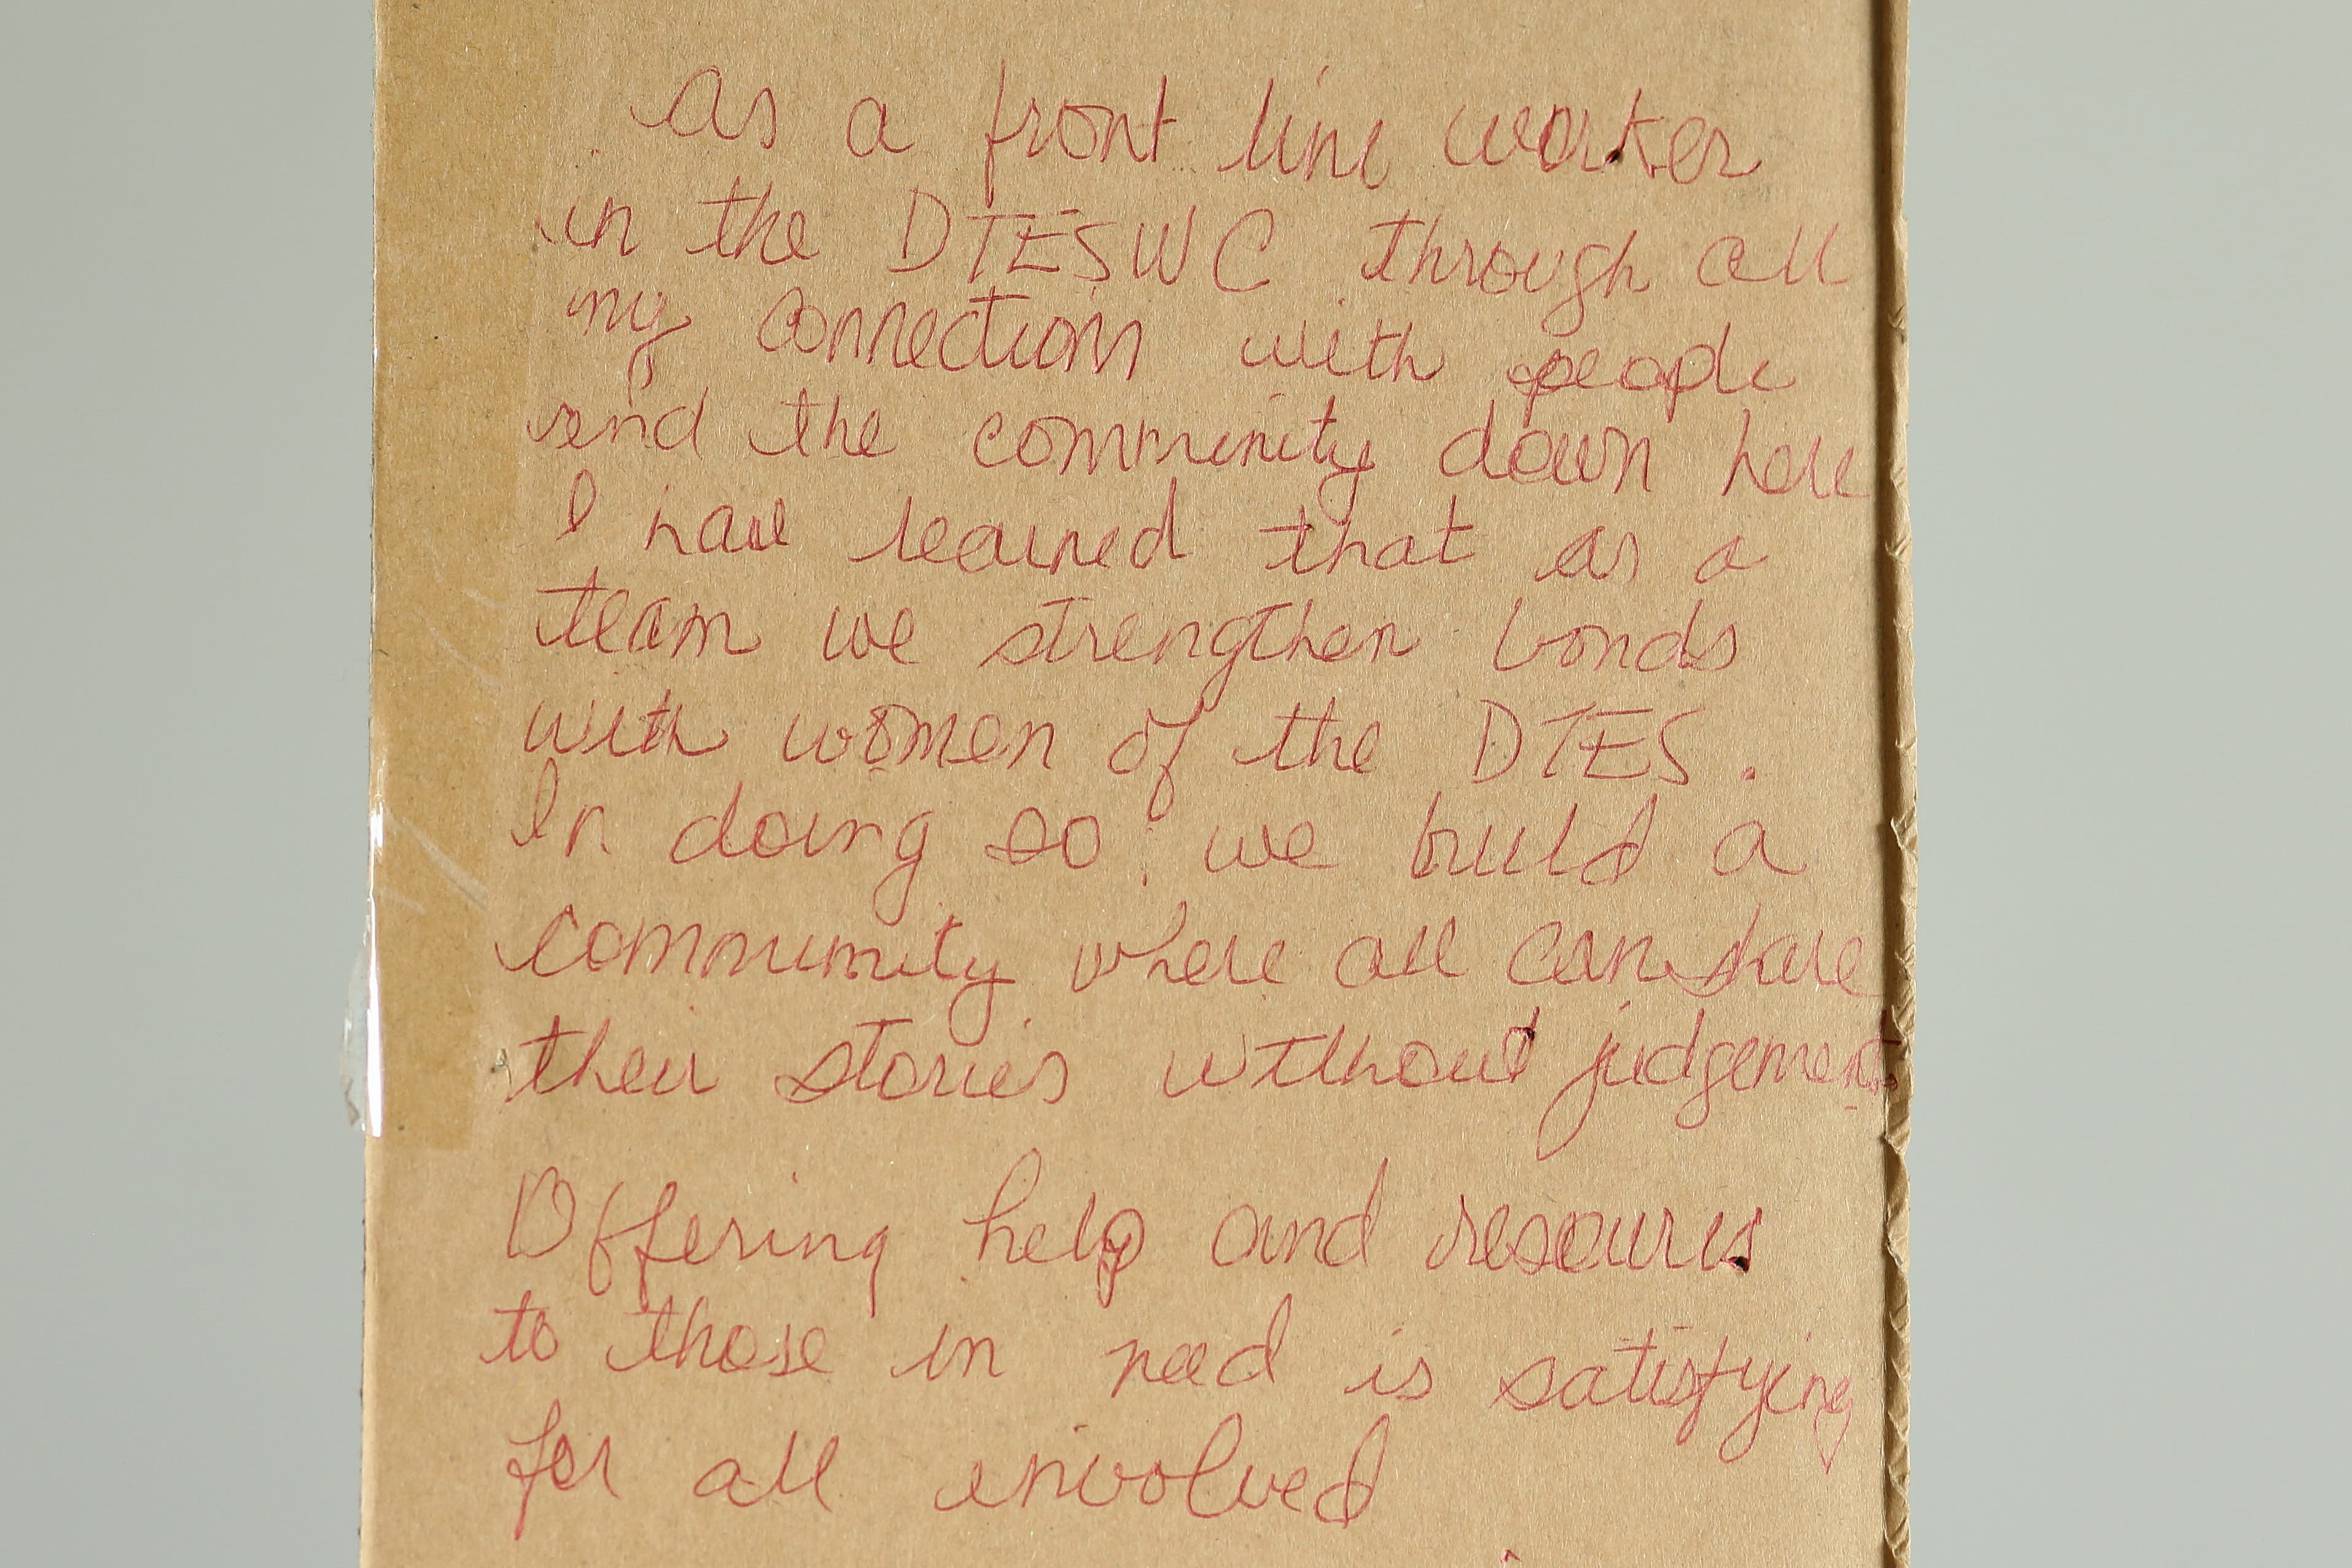 As a front line worker
in the DTESWC through all
my connections with people
and the community down here
I have learned that as a
team we strengthen bonds
with women of the DTES.
In doing so we build a
community where all can share
their stories without judgement.
Offering help and resources
to those in need is satisfying
for all involved